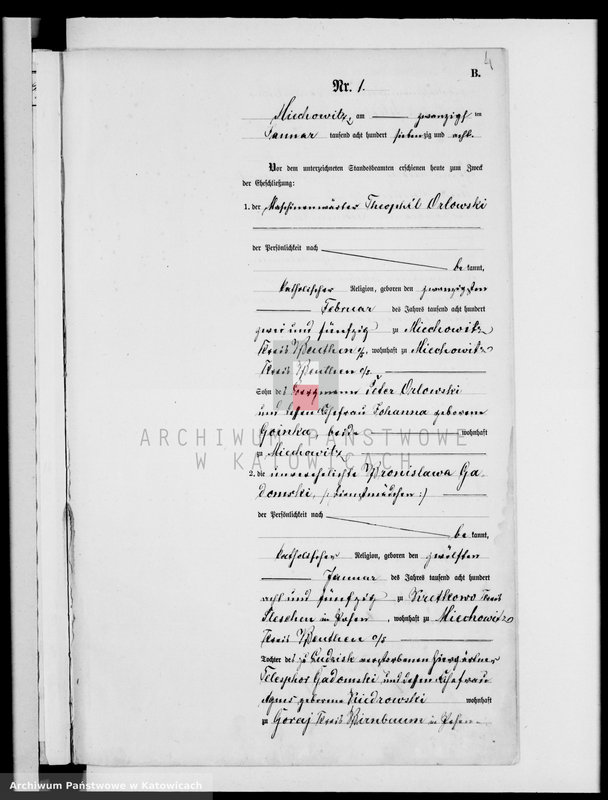 4
B.
Nr. 1.
Miechowitz, am zwanzigsten
Januar tausend acht hundert siebenzig und acht.
Vor dem unterzeichneten Standesbeamten erschienen heute zum Zweck
der Eheschließung:
1. der Maschinenwärter Theophil Orlowski
der Persönlichkeit nach
be kannt,
katholischer Religion, geboren den zwanzigsten
Februar des Jahres tausend acht hundert
zwei und fünfzig zu Miechowitz
Kreis Beuthen o/s, wohnhaft zu Miechowitz
Kreis Beuthen o/s
Sohn des Bergmann Peter Orlowski
und dessen Ehefrau Johanna geborene
Goinka, beide wohnhaft
zu Miechowitz
2. die unverehelichte Bronislawa Ga-
domski, (: Dienstmädchen :)
der Persönlichkeit nach
be kannt,
katholischer Religion, geboren den zwölften
Januar des Jahres tausend acht hundert
acht und fünfzig zu Kretkowo Kreis
Pleschen in Posen, wohnhaft zu Miechowitz
Kreis Beuthen o/s
Tochter des zu verstorbenen
Telesphor Gadomski und dessen Ehefrau
Agnes geborene Kiedrowski wohnhaft
zu Goraj Kreis Birnbaum in Posen
ARCHIWUM PAŃSTWOWE
W KATOWICACH
Archiwum Państwowe w Katowicach